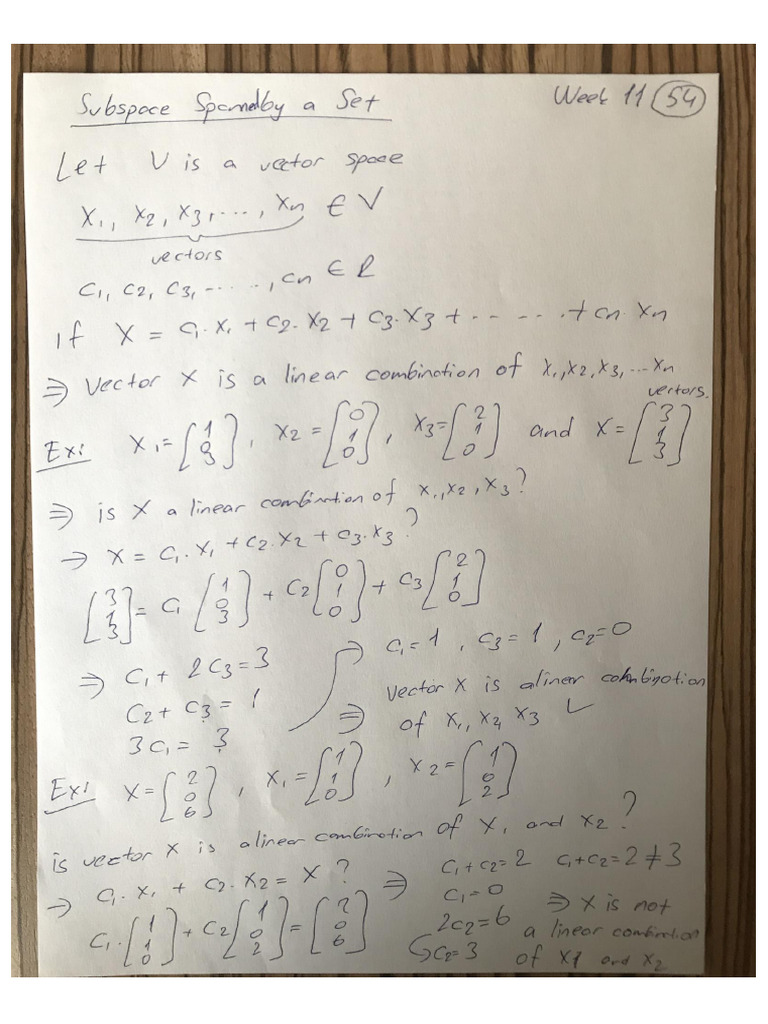 Subspace Spanned by a Set Week 11 (54)
Let V is a vector space
X1, X2, X3, ..., Xn ∈ V
vectors
C1, C2, C3, ....., Cn ∈ R
if X = C1.X1 + C2.X2 + C3.X3 + ...... + Cn.Xn
⇒ Vector X is a linear combination of X1,X2,X3,...Xn
vectors.
Ex: X1 = [1 0 3], X2 = [0 1 0], X3 = [2 1 0] and X = [3 1 3]
⇒ is X a linear combination of X1,X2,X3?
→ X = C1.X1 + C2.X2 + C3.X3?
[3 1 3] = C1 [1 0 3] + C2 [0 1 0] + C3 [2 1 0]
⇒ C1 + 2C3 = 3
C2 + C3 = 1
3C1 = 3
⇒ C1=1, C3=1, C2=0
⇒ vector X is a linear combination
of X1, X2, X3 ✓
Ex: X = [2 0 6], X1 = [1 1 0], X2 = [1 0 2]
is vector X is a linear combination of X1 and X2?
→ C1.X1 + C2.X2 = X?
C1.[1 1 0] + C2 [1 0 2] = [2 0 6]
⇒ C1+C2=2 C1+C2=2≠3
C1=0
2C2=6
C2=3
⇒ X is not
a linear combination
of X1 and X2